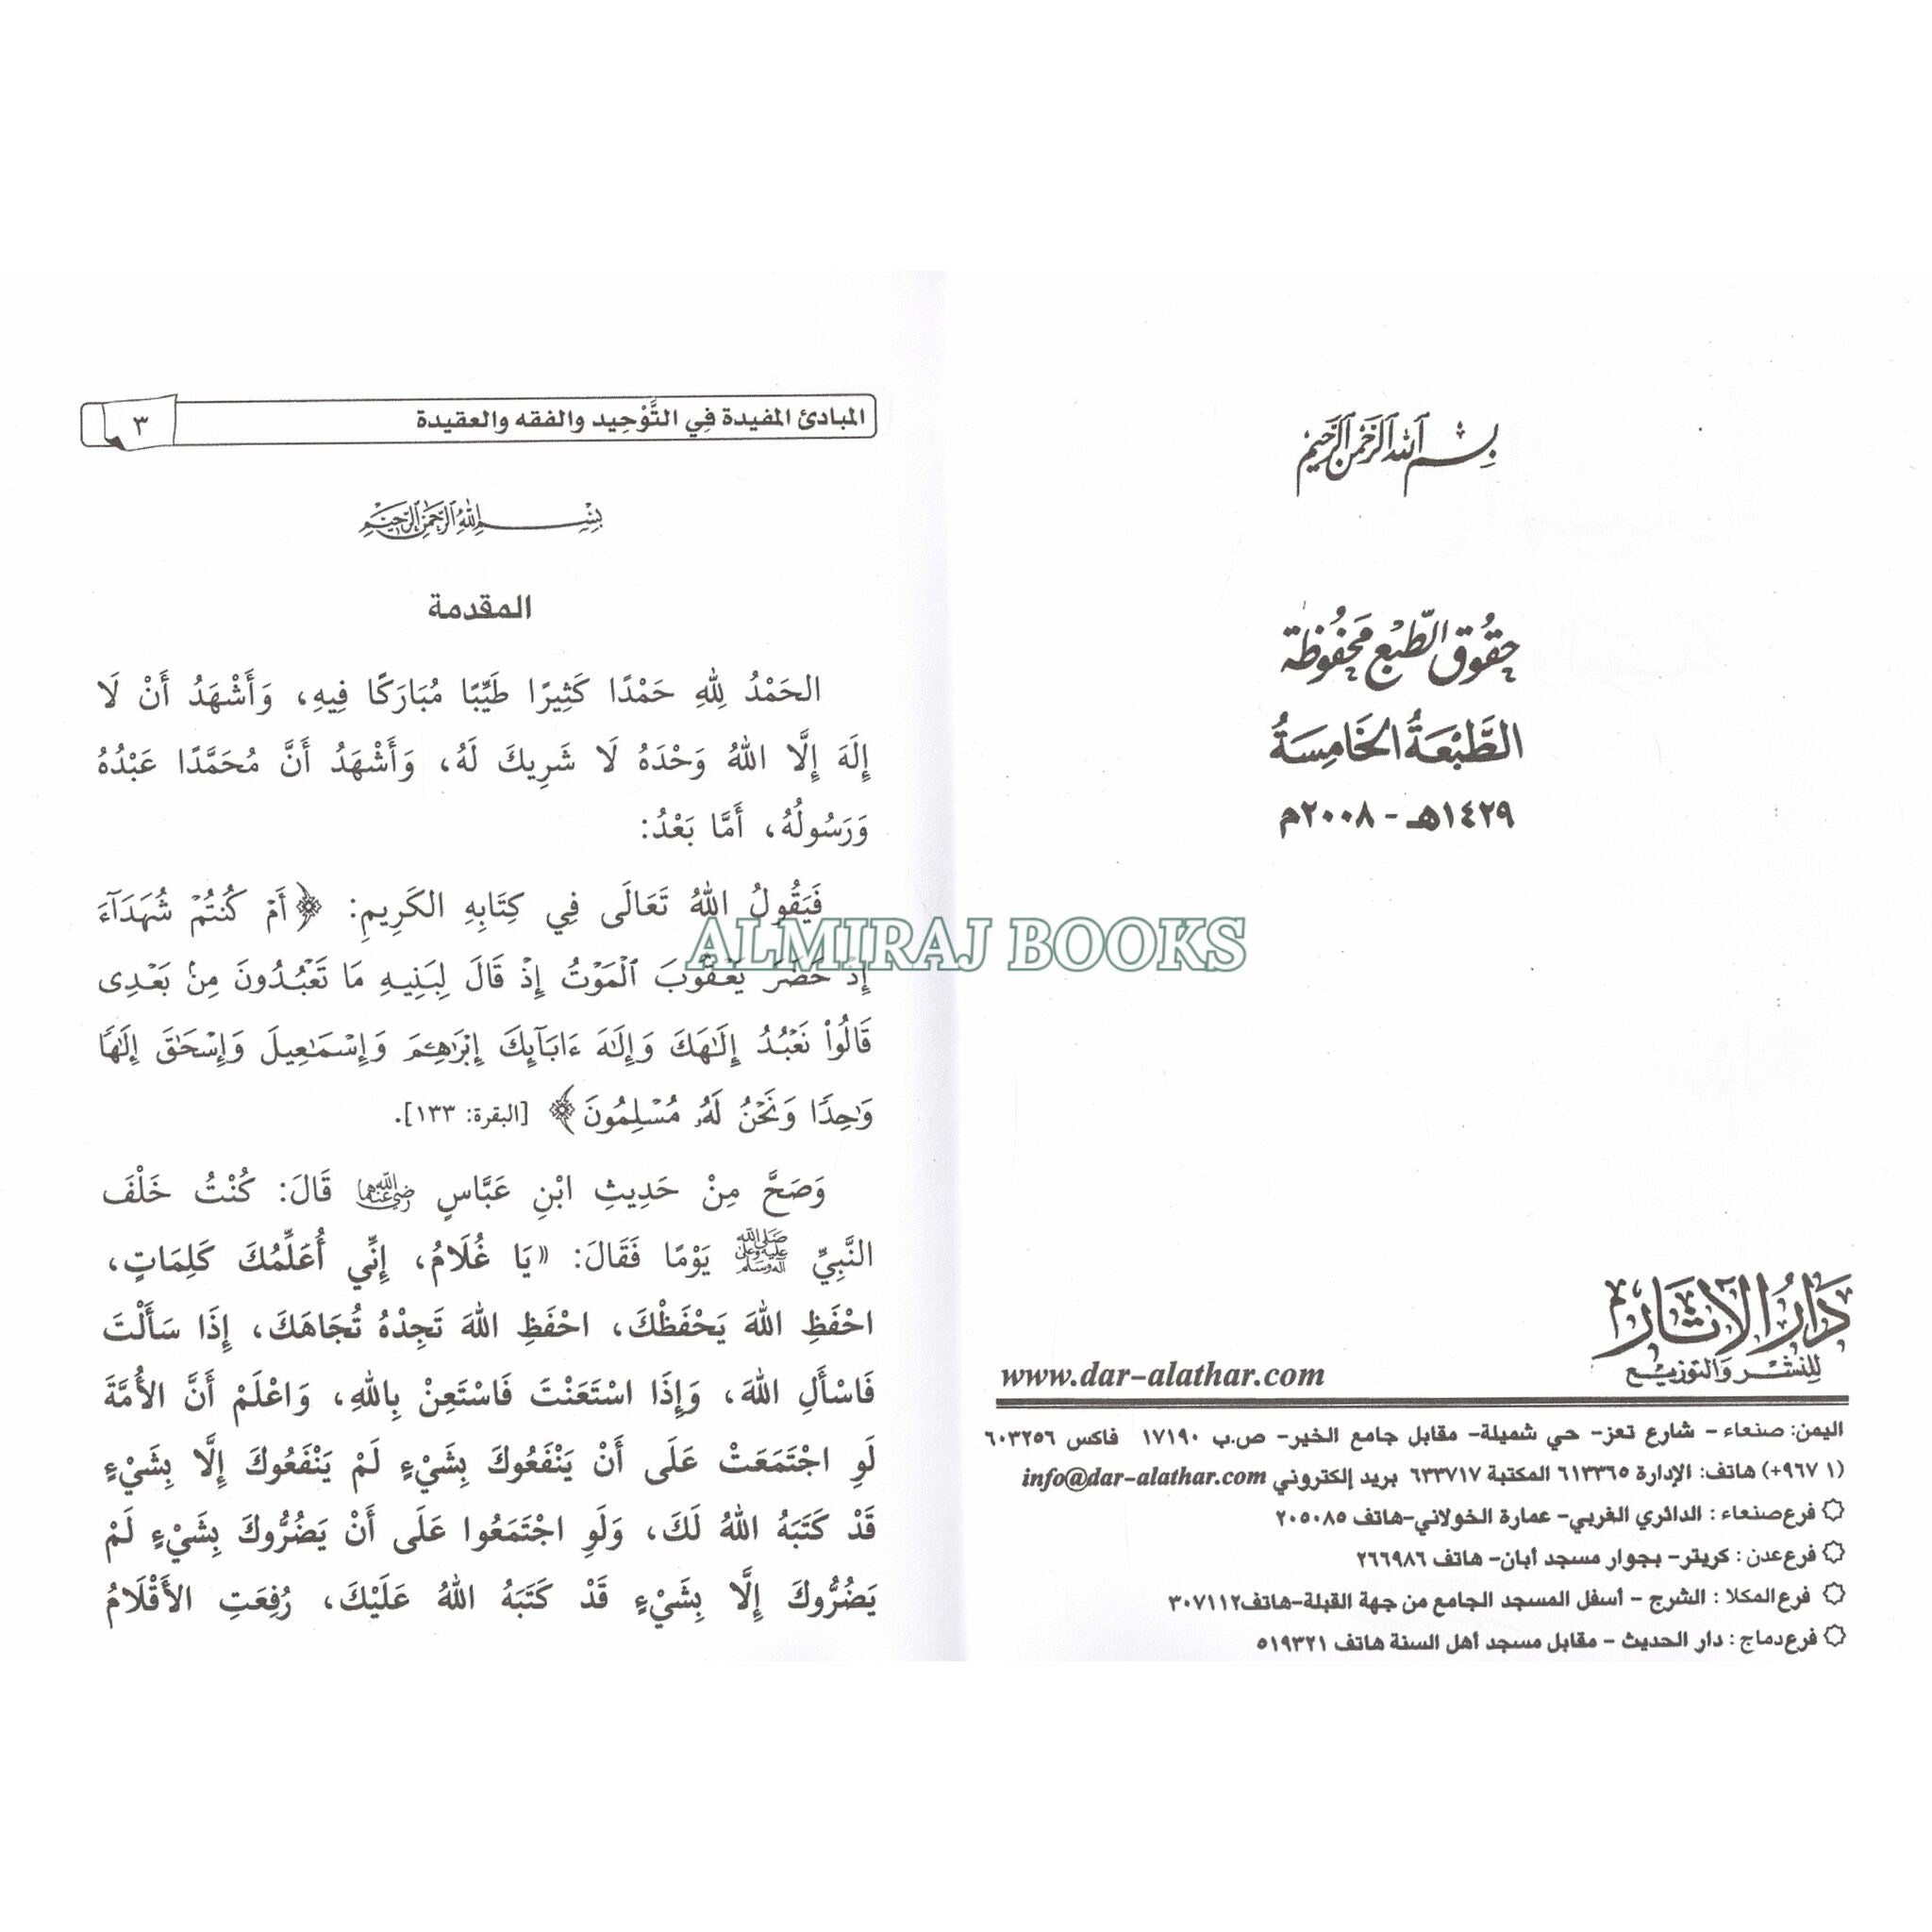 بِسْمِ اللهِ الرَّحْمٰنِ الرَّحِيمِ
حُقُوق الطَّبْع مَحْفُوظَة
الطَّبْعَةُ الخَامِسَةُ
١٤٢٩هـ - ٢٠٠٨م
دَارُ الآثَار
لِلنشْر وَالتوزيع
www.dar-alathar.com
اليمن: صنعاء - شارع تعز- حي شميلة- مقابل جامع الخير- ص.ب ١٧١٩٠ فاكس ٦٠٣٢٥٦
(٩٦٧ ١+) هاتف: الإدارة ٦١٣٣٦٥ المكتبة ٦٣٣٧١٧ بريد إلكتروني info@dar-alathar.com
فرع صنعاء : الدائري الغربي- عمارة الخولاني-هاتف ٢٠٥٠٨٥
فرع عدن : كريتر- بجوار مسجد أبان- هاتف ٢٦٦٩٨٦
فرع المكلا : الشرج - أسفل المسجد الجامع من جهة القبلة-هاتف٣٠٧١١٢
فرع دماج : دار الحديث - مقابل مسجد أهل السنة هاتف ٥١٩٣٢١
المبادئ المفيدة فِي التَّوْحِيد والفقه والعقيدة ٣
بِسْمِ اللهِ الرَّحْمٰنِ الرَّحِيمِ
المقدمة
الحَمْدُ لِلهِ حَمْدًا كَثِيرًا طَيِّبًا مُبَارَكًا فِيهِ، وَأَشْهَدُ أَنْ لَا
إِلَهَ إِلَّا اللهُ وَحْدَهُ لَا شَرِيكَ لَهُ، وَأَشْهَدُ أَنَّ مُحَمَّدًا عَبْدُهُ
وَرَسُولُهُ، أَمَّا بَعْدُ:
فَيَقُولُ اللهُ تَعَالَى فِي كِتَابِهِ الكَرِيمِ: ﴿أَمْ كُنتُمْ شُهَدَآءَ
إِذْ حَضَرَ يَعْقُوبَ ٱلْمَوْتُ إِذْ قَالَ لِبَنِيهِ مَا تَعْبُدُونَ مِنۢ بَعْدِى
قَالُوا۟ نَعْبُدُ إِلَـٰهَكَ وَإِلَـٰهَ ءَابَآئِكَ إِبْرَٰهِـۧمَ وَإِسْمَـٰعِيلَ وَإِسْحَـٰقَ إِلَـٰهًا
وَٰحِدًا وَنَحْنُ لَهُۥ مُسْلِمُونَ﴾ [البقرة: ١٣٣].
وَصَحَّ مِنْ حَدِيثِ ابْنِ عَبَّاسٍ رضي الله عنهما قَالَ: كُنْتُ خَلْفَ
النَّبِيِّ صلى الله عليه وعلى آله وسلم يَوْمًا فَقَالَ: «يَا غُلَامُ، إِنِّي أُعَلِّمُكَ كَلِمَاتٍ،
احْفَظِ اللهَ يَحْفَظْكَ، احْفَظِ اللهَ تَجِدْهُ تُجَاهَكَ، إِذَا سَأَلْتَ
فَاسْأَلِ اللهَ، وَإِذَا اسْتَعَنْتَ فَاسْتَعِنْ بِاللهِ، وَاعْلَمْ أَنَّ الأُمَّةَ
لَوِ اجْتَمَعَتْ عَلَى أَنْ يَنْفَعُوكَ بِشَيْءٍ لَمْ يَنْفَعُوكَ إِلَّا بِشَيْءٍ
قَدْ كَتَبَهُ اللهُ لَكَ، وَلَوِ اجْتَمَعُوا عَلَى أَنْ يَضُرُّوكَ بِشَيْءٍ لَمْ
يَضُرُّوكَ إِلَّا بِشَيْءٍ قَدْ كَتَبَهُ اللهُ عَلَيْكَ، رُفِعَتِ الأَقْلَامُ
ALMIRAJ BOOKS